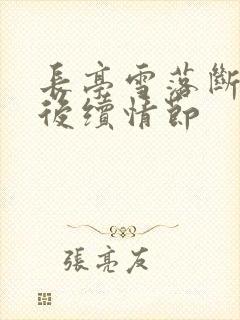 長亭雪落斷
後續情節
張亮友